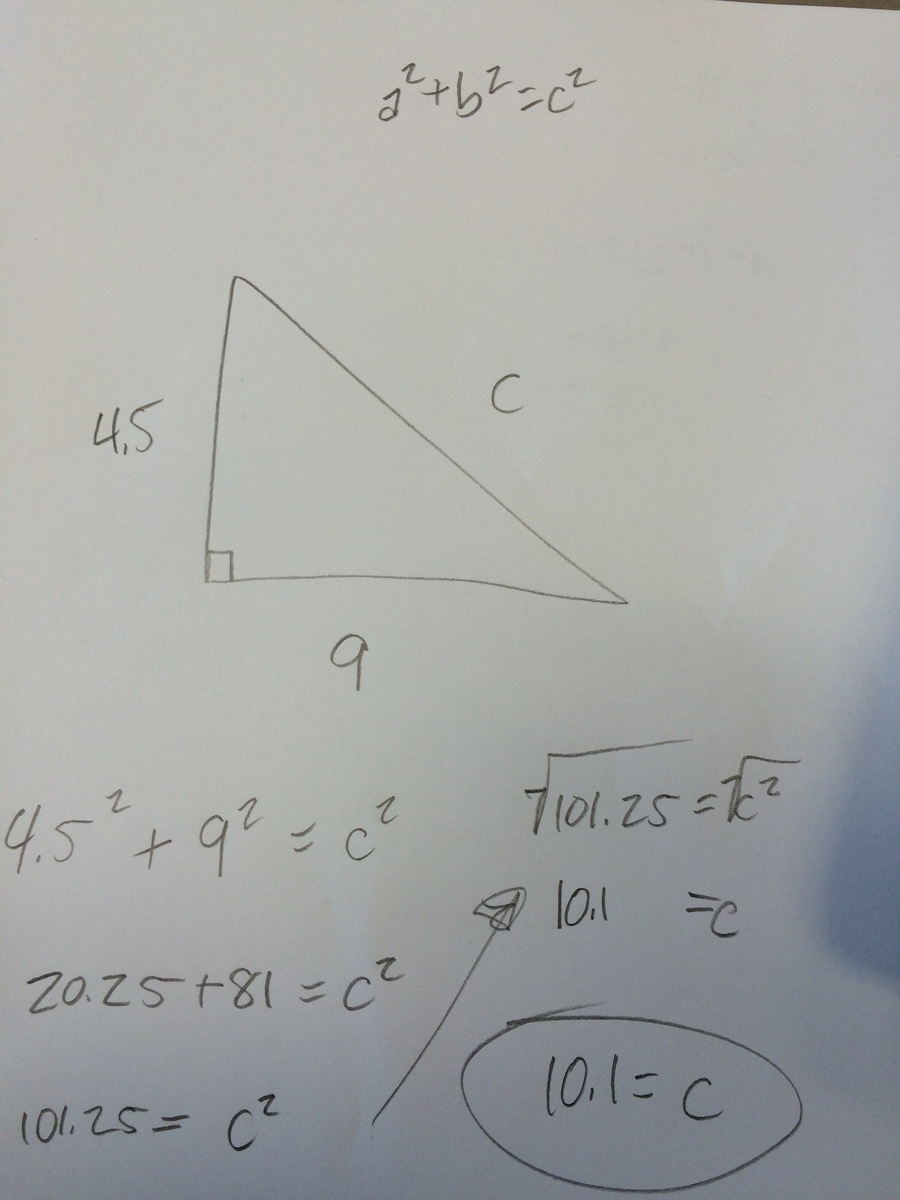 a²+b²=c²
4.5
c
9
4.5² + 9² = c²
20.25+81 = c²
101.25 = c²
√101.25 = √c²
10.1 = c
10.1 = c